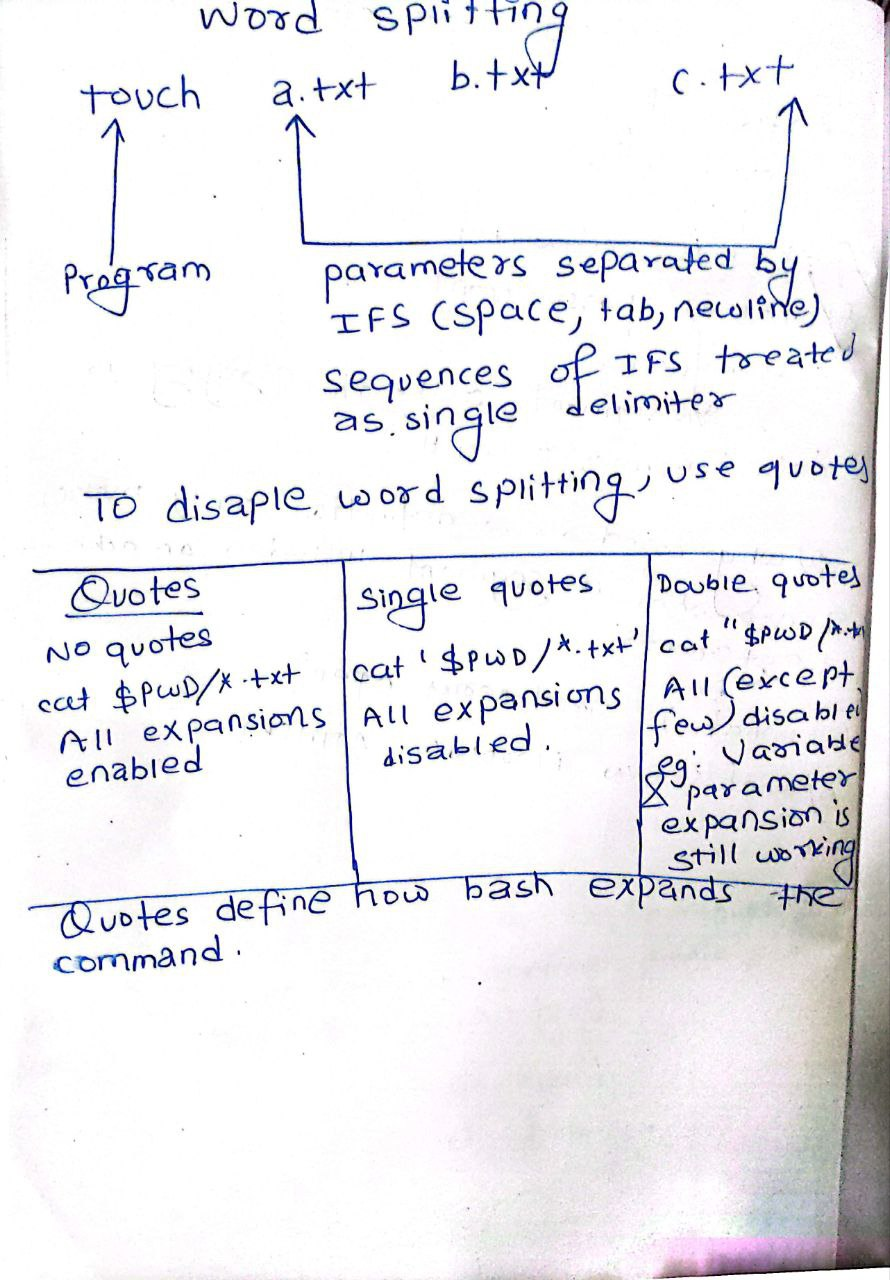 Word splitting
touch a.txt b.txt c.txt
Program
parameters separated by
IFS (space, tab, newline)
sequences of IFS treated
as single delimiter
To disaple word splitting, use quotes
Quotes
No quotes
cat $PWD/*.txt
All expansions
enabled
Single quotes
cat '$PWD/*.txt'
All expansions
disabled.
Double quotes
cat "$PWD/*.t
All (except
few) disable
eg: Variable
& parameter
expansion is
still working
Quotes define how bash expands the
command.